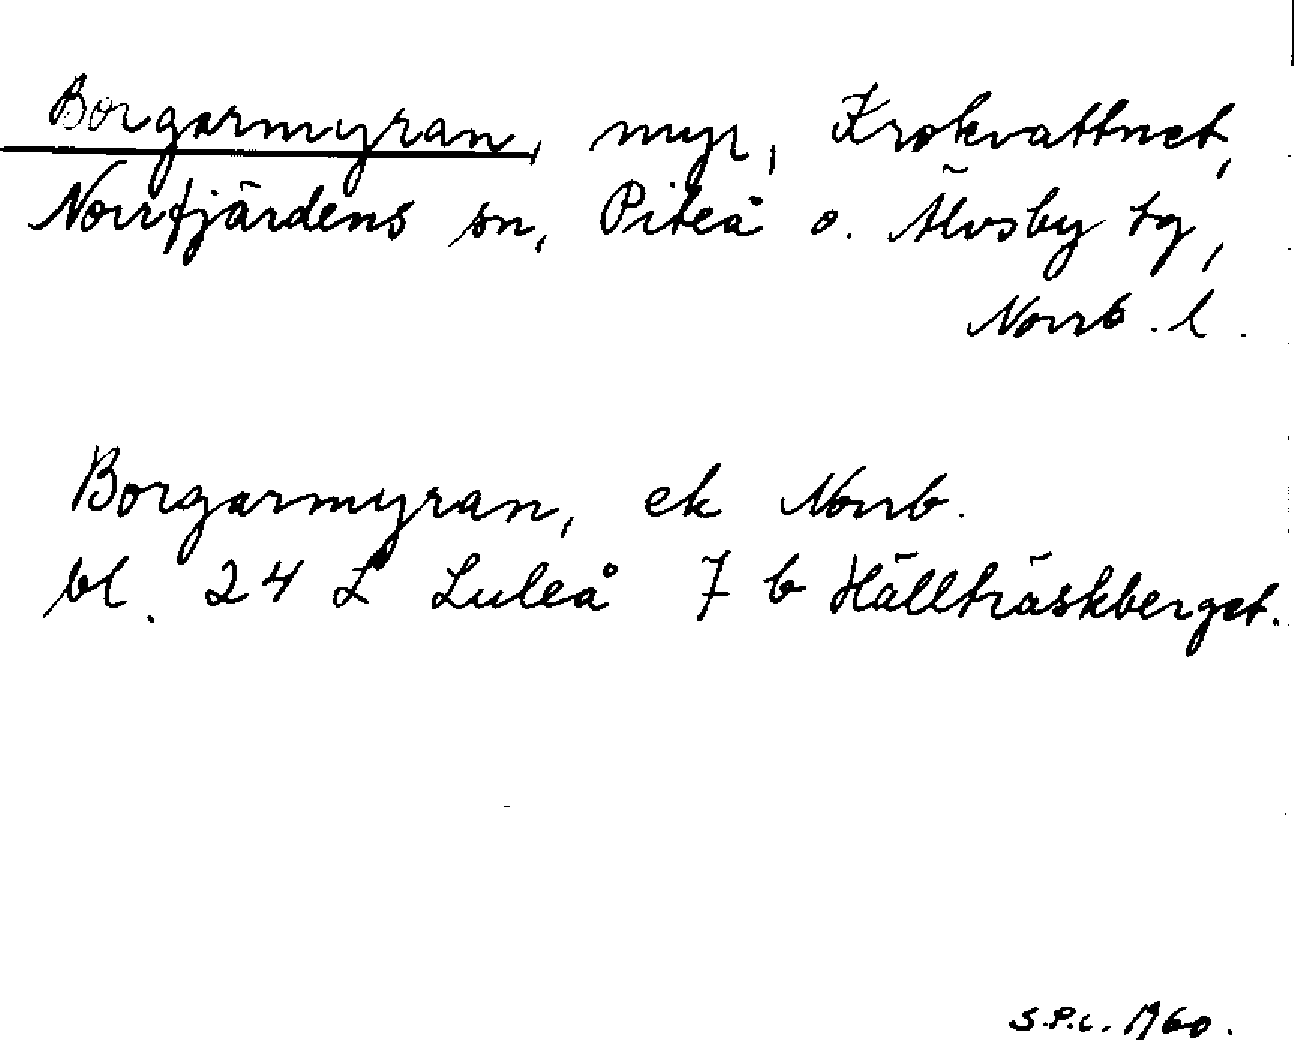 Borgarmyran, myr, Krokvattnet,
Norrfjärdens sn, Piteå o. Älvsby tg,
Norrb. l.
Borgarmyran, ek Norrb.
bl. 24 L Luleå 7 b Hällträskberget.
S.P.L. 1960.